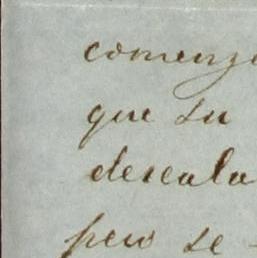 comenz
que su
deseaba
pero se